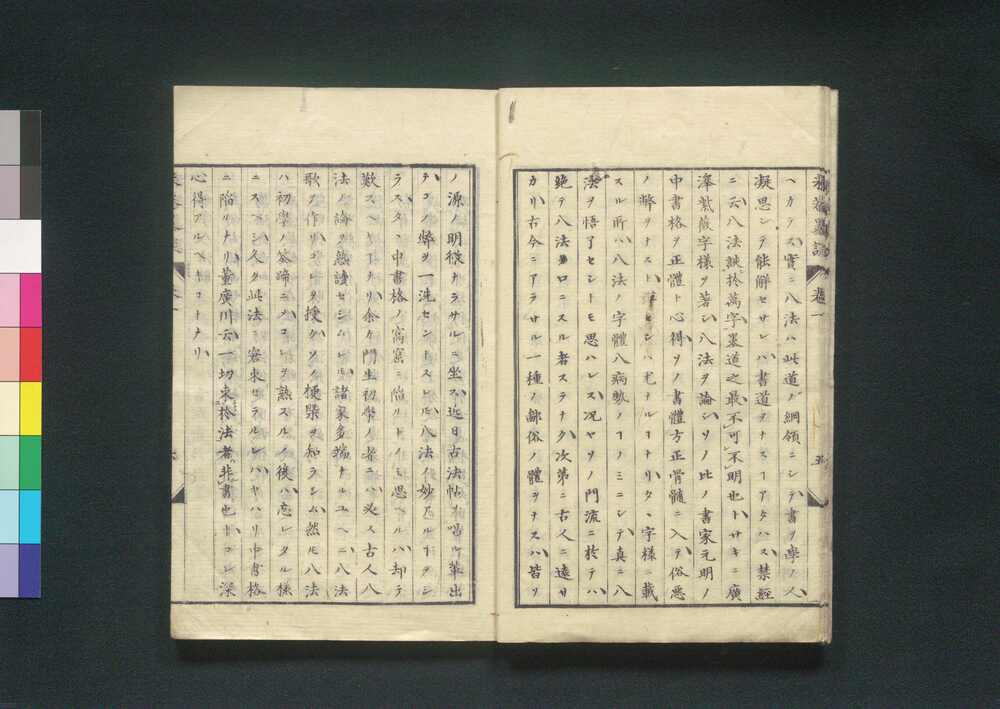 ヘカラス實ニ八法ハ此道ノ綱領ニシテ書ヲ學ノ人
凝思シテ能解セサレハ書道ヲナスヿアタハス禁經
ニ云八法鈌於萬字墨道之最不可不明也トサキニ廣
澤紫薇字樣ヲ著シ八法ヲ論シソノ比ノ書家元明ノ
中書格ヲ正體ト心得ソノ書體方正骨髓ニ入テ俗惡
ノ弊ヲナスハ ヒシハ尤ナルヿナリタヽ字樣ニ載
スル所ハ八法ノ字體八病勢ノヿノミニシテ真ニ八
法ヲ悟了セシトモ思ハレス況ヤソノ門流ニ於テハ
絶テ八法ヲ口ニスル者スラナク次第ニ古人ニ遠サ
カリ古今ニアラサル一種ノ鄙俗ノ體ヲナスハ皆ソ
ノ源ノ明様ナラサルニ坐ス近日古法帖ヲ唱ル輩出
テコノ弊ヲ一洗セントスレトモ八法ノ妙アルヿヲシ
ラスタヽ中書格ノ窩窟ニ陷リトノミ思ヘルハ却テ
歎スヘキヿナリ余カ門生初學ノ者ニハ必ス古人八
法ノ論ヲ熟讀セシムレトモ諸家多端ナルユヘニ八法
歌ヲ作リコレヲ授ケソノ梗槩ヲ知ラシム然レトモ八法
ハ初學ノ筌蹄ニシテコレヲ熟スルノ後ハ忘レタル様
ニスヘシ久ク此法ニ窘束セラルレハヤハリ中書格
ニ陷ルナリ董廣川云一切束於法者非書也トコレ深
心得アルヘキコトナリ
卷一
五